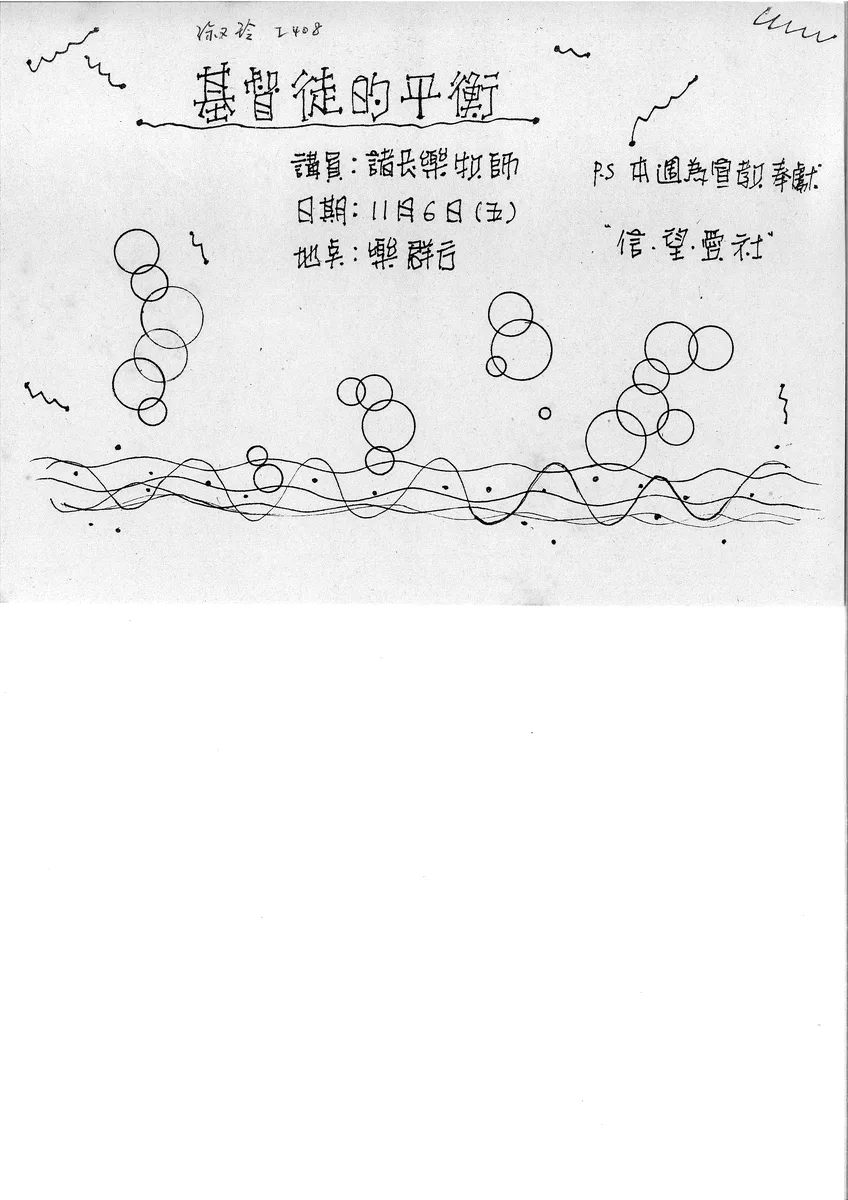 徐又玲 I408
基督徒的平衡
講員：諸長樂牧師
日期：11月6日(五)
地點：樂群台
P.S 本週為宣教奉獻
"信.望.愛社"